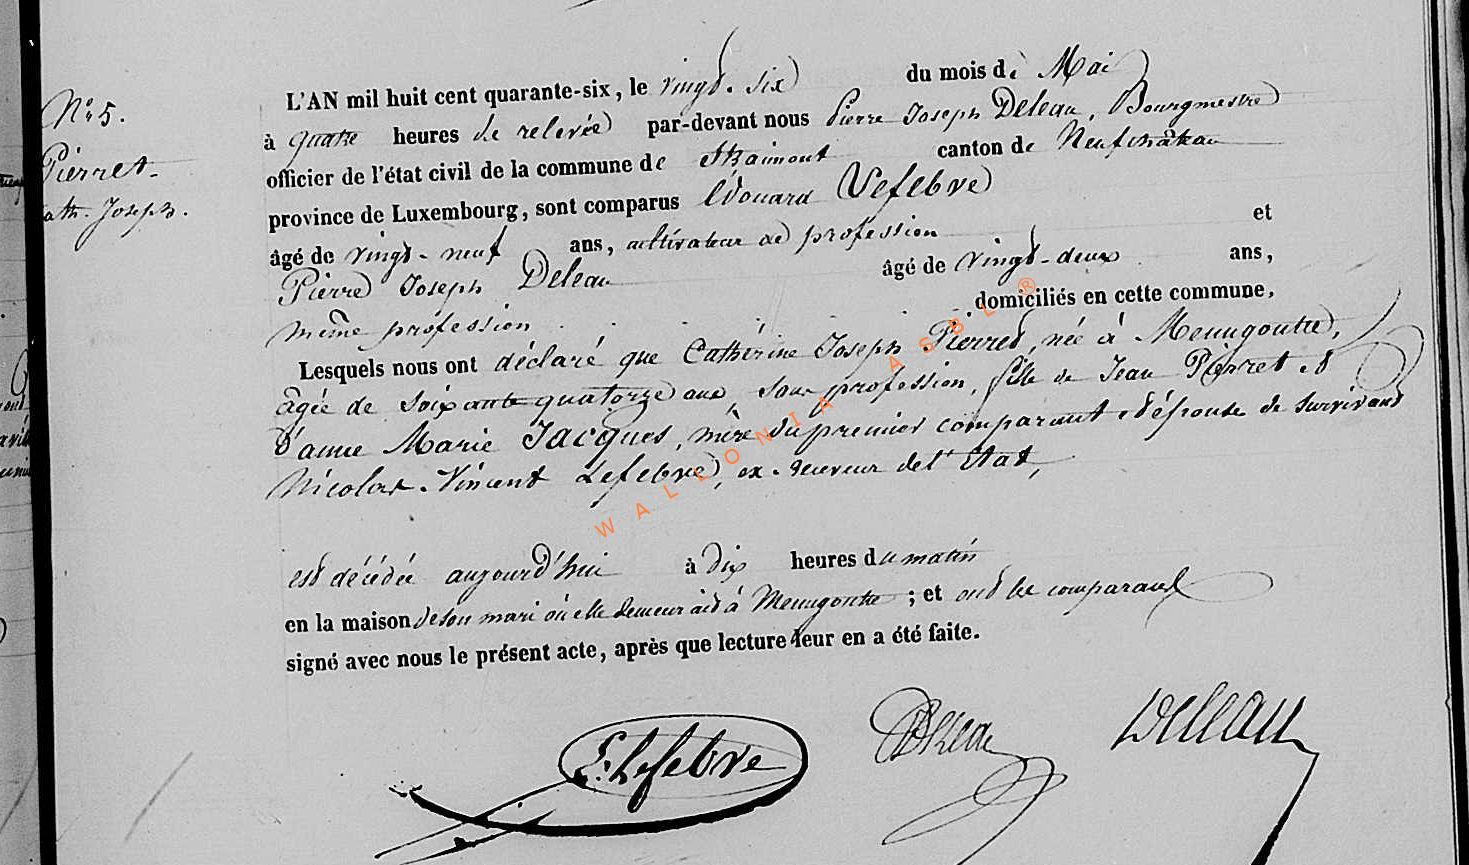 N° 5.
Pierret
ath. Joseph.
L'AN mil huit cent quarante-six, le vingt-six du mois de Mai
à quatre heures de relevée par-devant nous Pierre Joseph Deleau, Bourgmestre
officier de l'état civil de la commune de Straimont canton de Neufchâteau
province de Luxembourg, sont comparus Edouard Lefebvre
âgé de vingt-neuf ans, cultivateur de profession et
Pierre Joseph Deleau âgé de vingt-deux ans,
même profession domiciliés en cette commune,
Lesquels nous ont déclaré que Catherine Joseph Pierret, née à Menugoutte,
âgée de soixante quatorze ans, sans profession, fille de Jean Pierret et
d'anne Marie Jacques, mère du premier comparant et épouse de survivant
Nicolas-Vincent Lefebvre, ex-receveur de l'Etat,
est décédée aujourd'hui à dix heures du matin
en la maison de son mari où elle demeurait à Menugoutte ; et ont les comparants
signé avec nous le présent acte, après que lecture leur en a été faite.
E. Lefebvre
Deleau
Deleau
WALLONIA ASBL ®